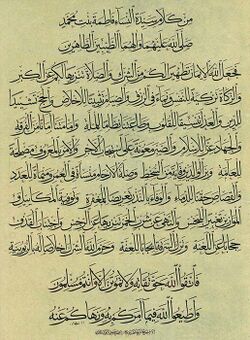 من كلام سيدة النساء فاطمة بنت محمد
صلى الله عليهما وآلهما الطيبين الطاهرين
فجعل الله الايمان تطهيرا لكم من الشرك والصلاة تنزيها لكم عن الكبر
والزكاة تزكية للنفس ونماء في الرزق والصيام تثبيتا للاخلاص والحج تشييدا
للدين والعدل تنسيقا للقلوب وطاعتنا نظاما للملة وامامتنا امانا من الفرقة
والجهاد عزا للاسلام والصبر معونة على استيجاب الاجر والامر بالمعروف مصلحة
للعامة وبر الوالدين وقاية من السخط وصلة الارحام منسأة في العمر ومنماة للعدد
والقصاص حقنا للدماء والوفاء بالنذر تعريضا للمغفرة وتوفية المكائيل و
الموازين تغييرا للبخس والنهي عن شرب الخمر تنزيها عن الرجس واجتناب القذف
حجابا عن اللعنة وترك السرقة ايجابا للعفة وحرم الله الشرك اخلاصا له بالربوبية
فاتقوا الله حق تقاته ولا تموتن الا وانتم مسلمون
واطيعوا الله فيما امركم به ونهاكم عنه